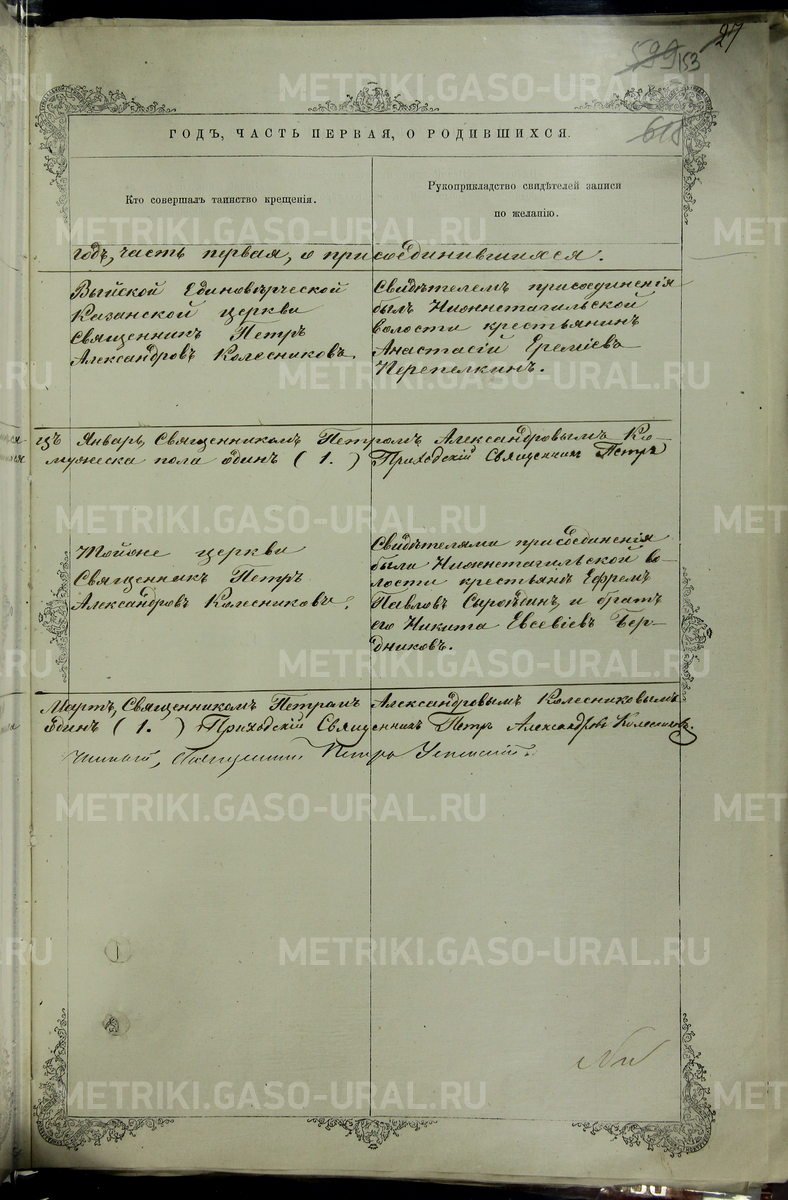 27
599 153
618
ГОДЪ, ЧАСТЬ ПЕРВАЯ, О РОДИВШИХСЯ.
Кто совершалъ таинство крещенія.
Рукоприкладство свидѣтелей записи
по желанію.
годъ, часть первая, о присоединившихся.
Выйской Единовѣрческой
Казанской церкви
Священникъ Петръ
Александровъ Колесниковъ
Свидѣтелемъ присоединенія
былъ Нижнетагильской
волости крестьянинъ
Анастасій Еремѣевъ
Перепелкинъ.
цъ Январь, Священникомъ Петромъ Александровымъ Ко-
мужеска пола одинъ (1.) Приходскій Священникъ Петръ
Тойже церкви
Священникъ Петръ
Александровъ Колесниковъ.
Свидѣтелями присоединенія
были Нижнетагильской во-
лости крестьянъ Ефремъ
Павловъ Сыроѣдинъ, и братъ
его Никита Евсевіевъ Бер-
дниковъ.
Мартъ, Священникомъ Петромъ Александровымъ Колесниковымъ
одинъ (1.) Приходскій Священникъ Петръ Александровъ Колесниковъ
METRIKI.GASO-URAL.RU